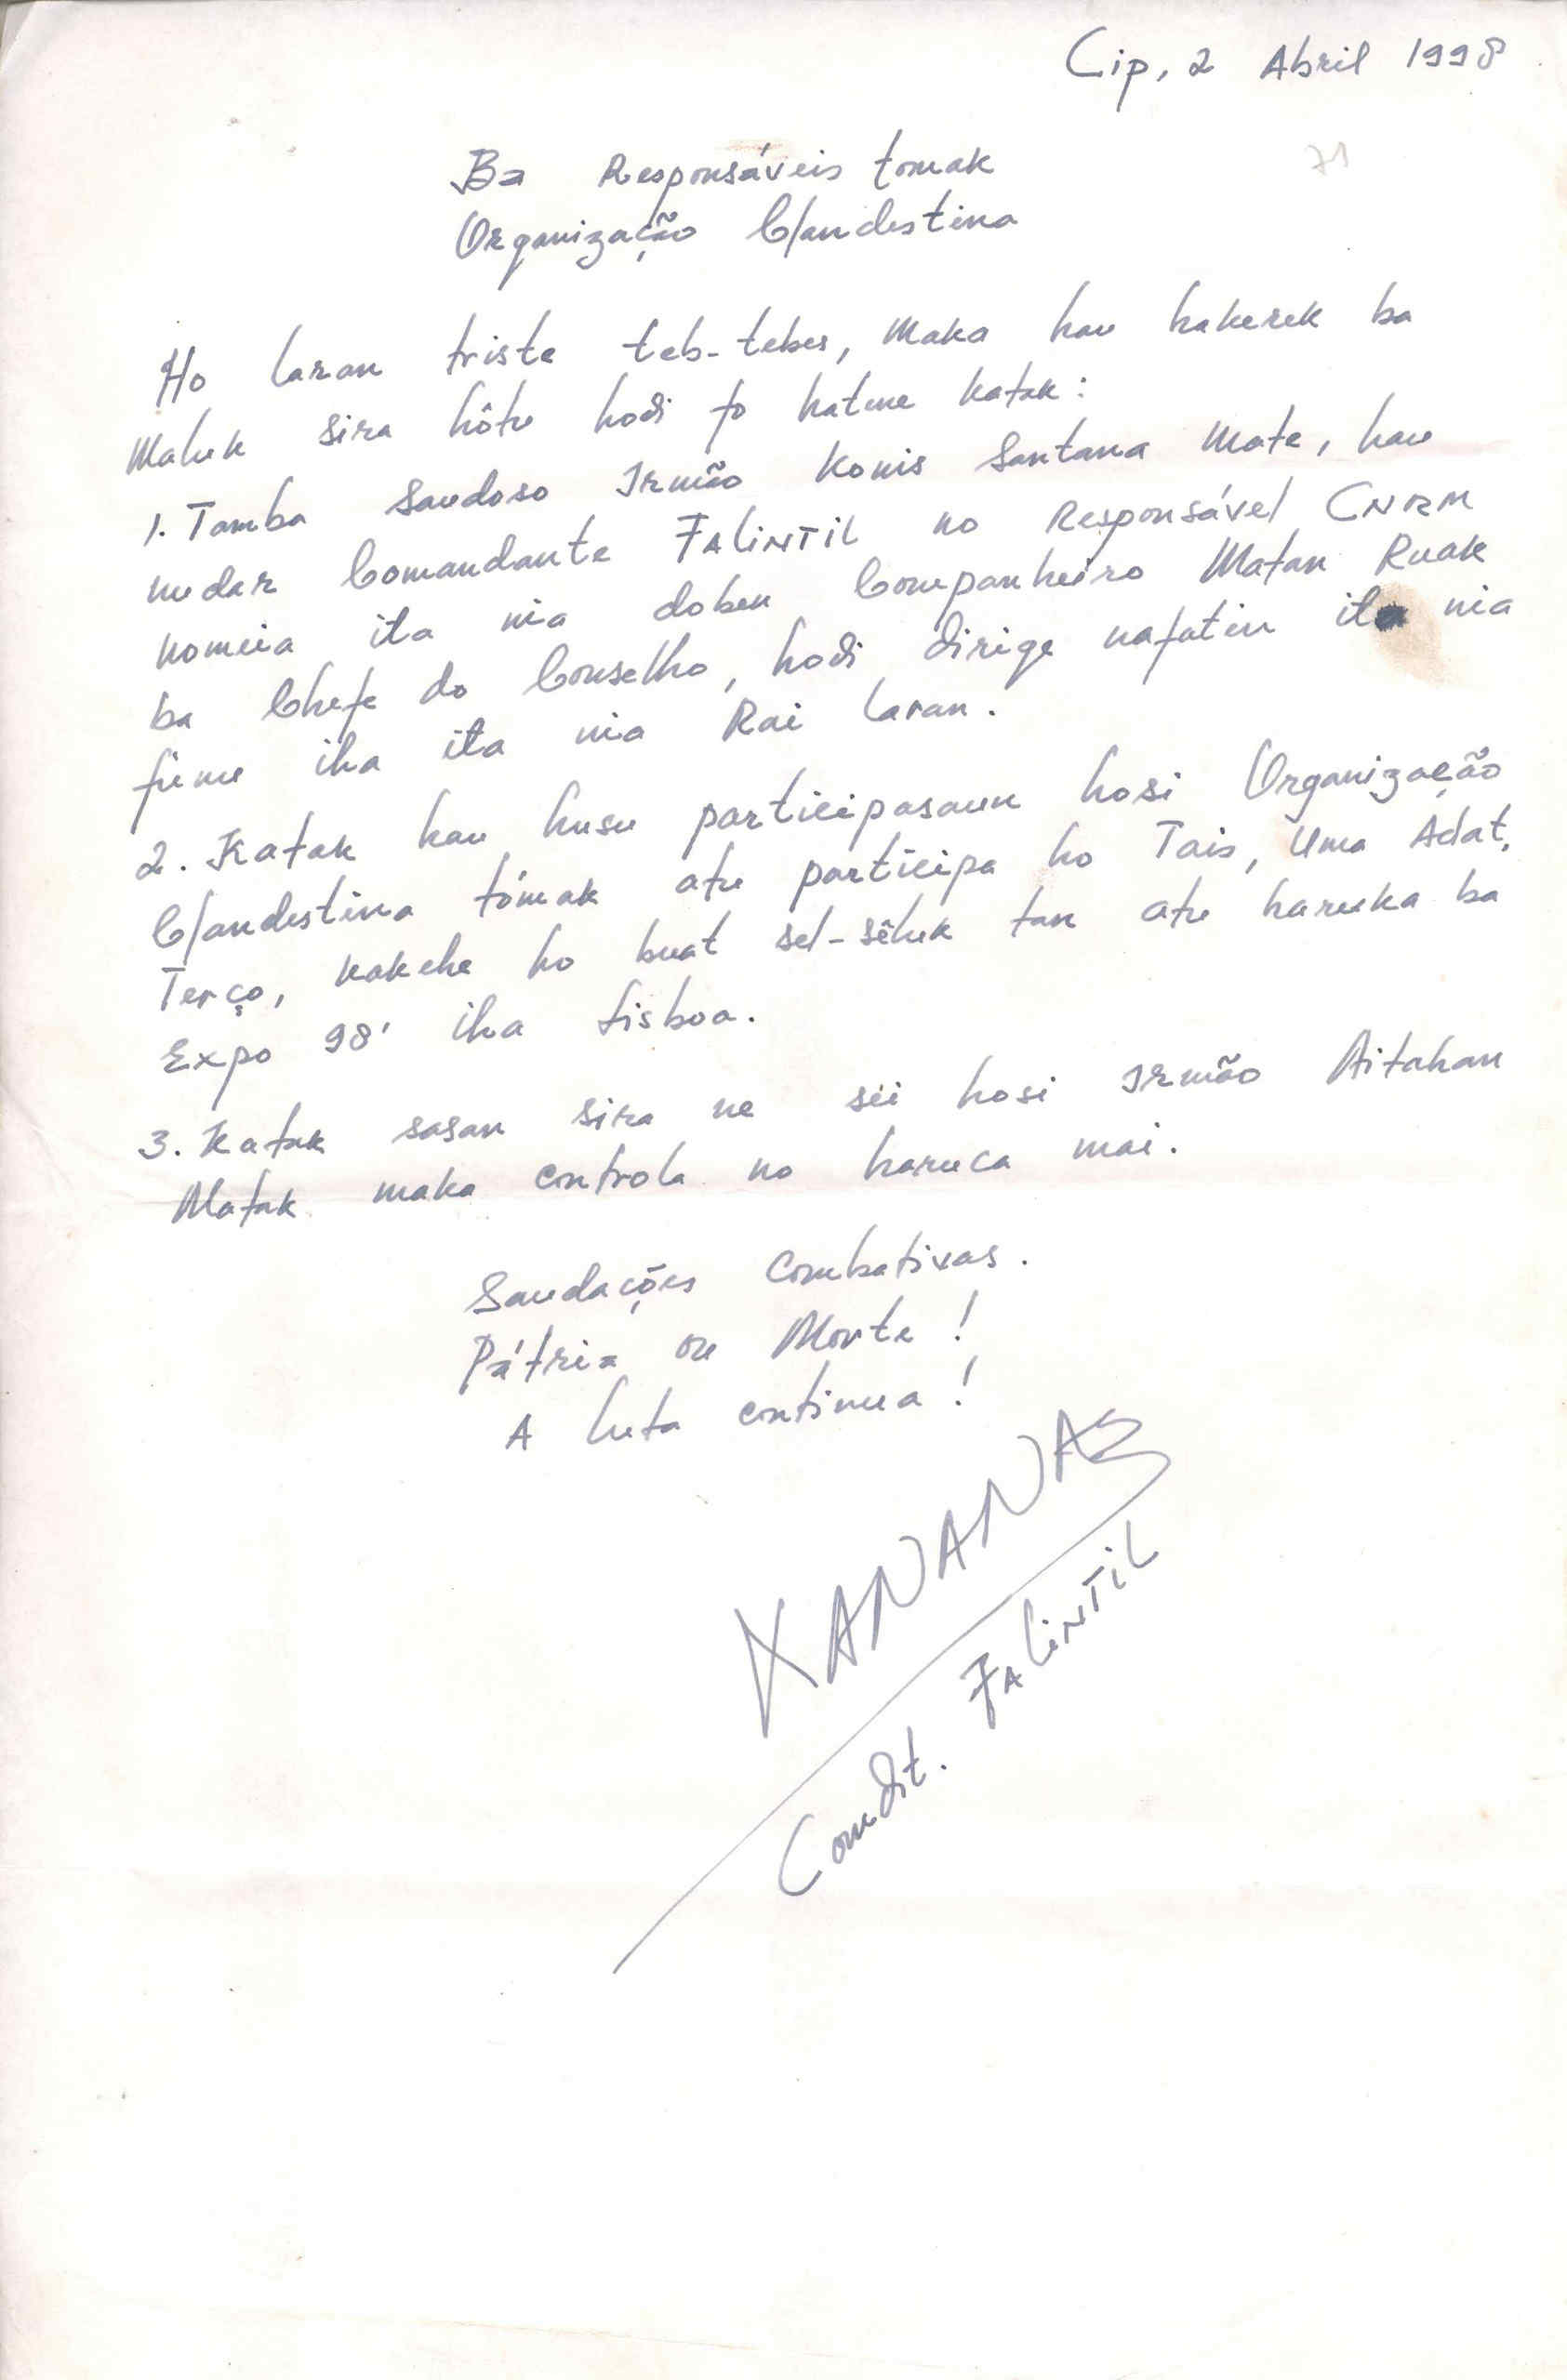 Cip, 2 Abril 1998
71
Ba Responsáveis tomak
Organização Clandestina
Ho laran triste teb-tebes, maka hau hakerek ba
Maluk sira hôtu hodi fo hatene katak:
1. Tamba Saudoso Irmão Konis Santana mate, hau
nudar Comandante FALINTIL no Responsável CNRM
nomeia ita nia doben Companheiro Matan Ruak
ba Chefe do Conselho, hodi dirige nafatin ita nia
funu iha ita nia Rai laran.
2. Katak hau husu participasaun hosi Organização
Clandestina tómak atu participa ho Tais, Uma Adat,
Terço, kakehe ho buat sel-sêluk tan atu haruka ba
Expo 98' iha Lisboa.
3. Katak sasan sira ne sei hosi Irmão Aitahan
Matak maka controla no haruca mai.
Saudações Combativas.
Pátria ou Morte!
A luta continua!
XANANA
Comdt. FALINTIL